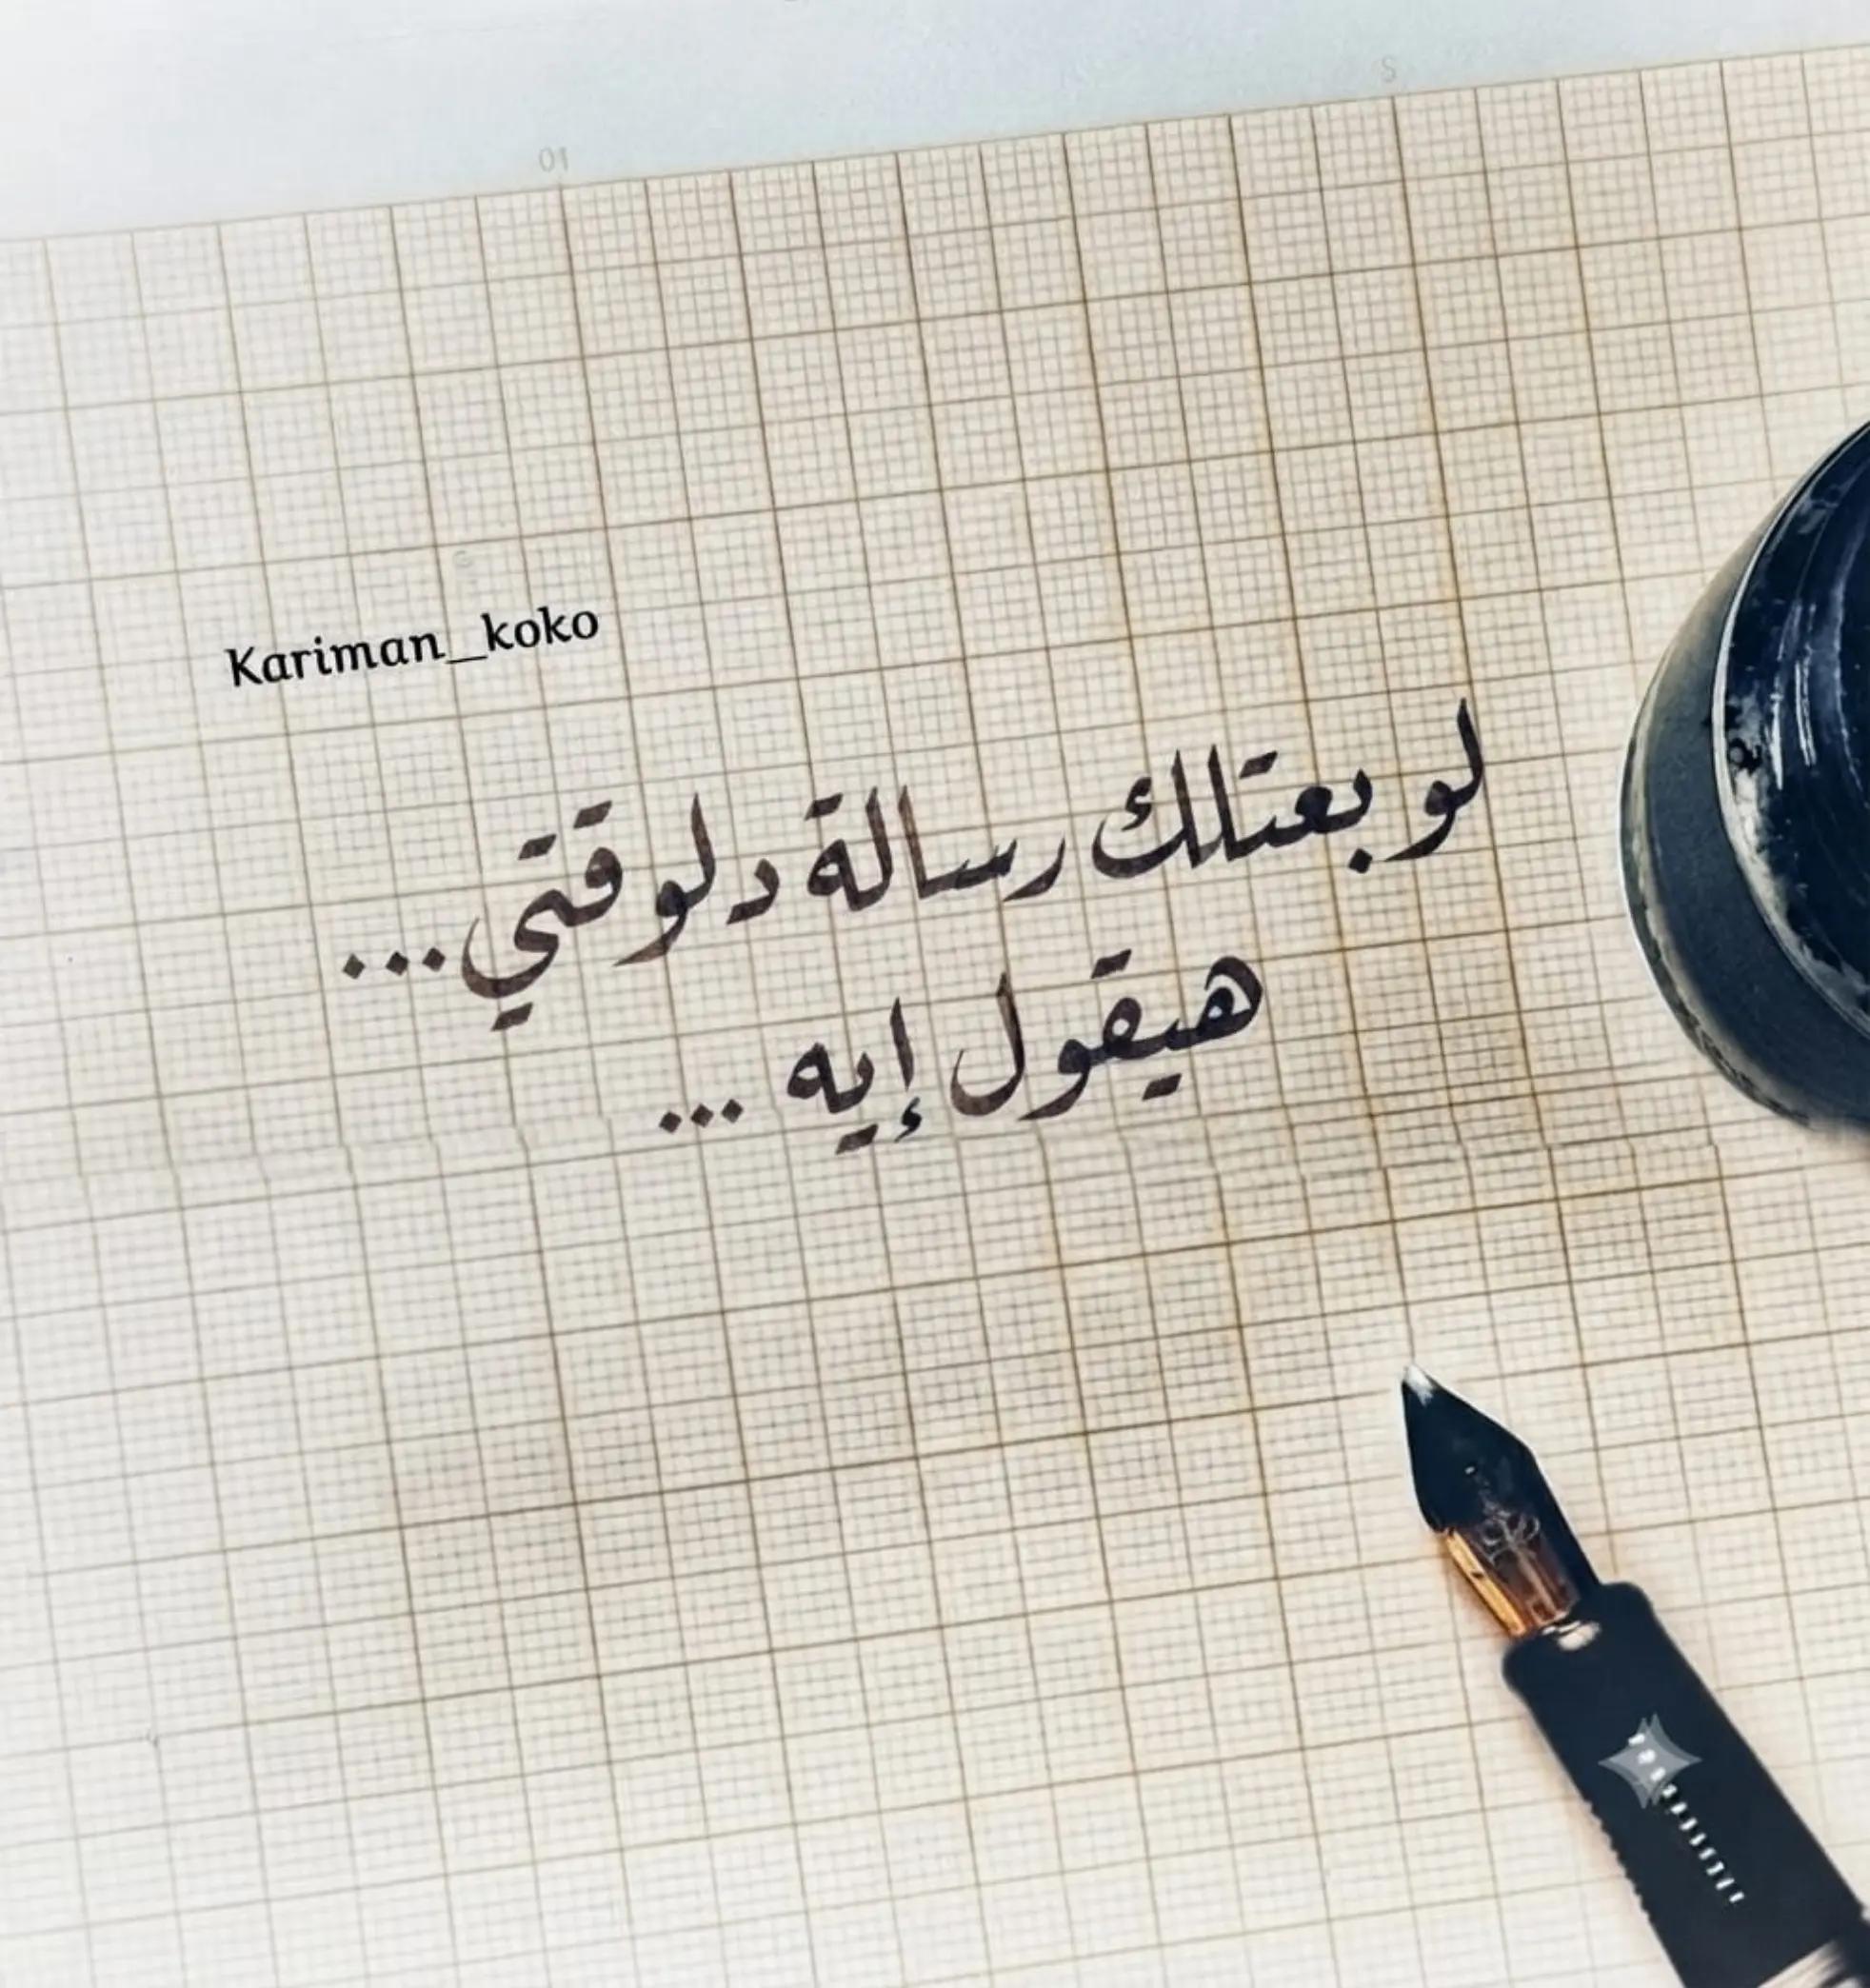 Kariman_koko
لو بعتلك رسالة دلوقتي...
هيقول إيه ...